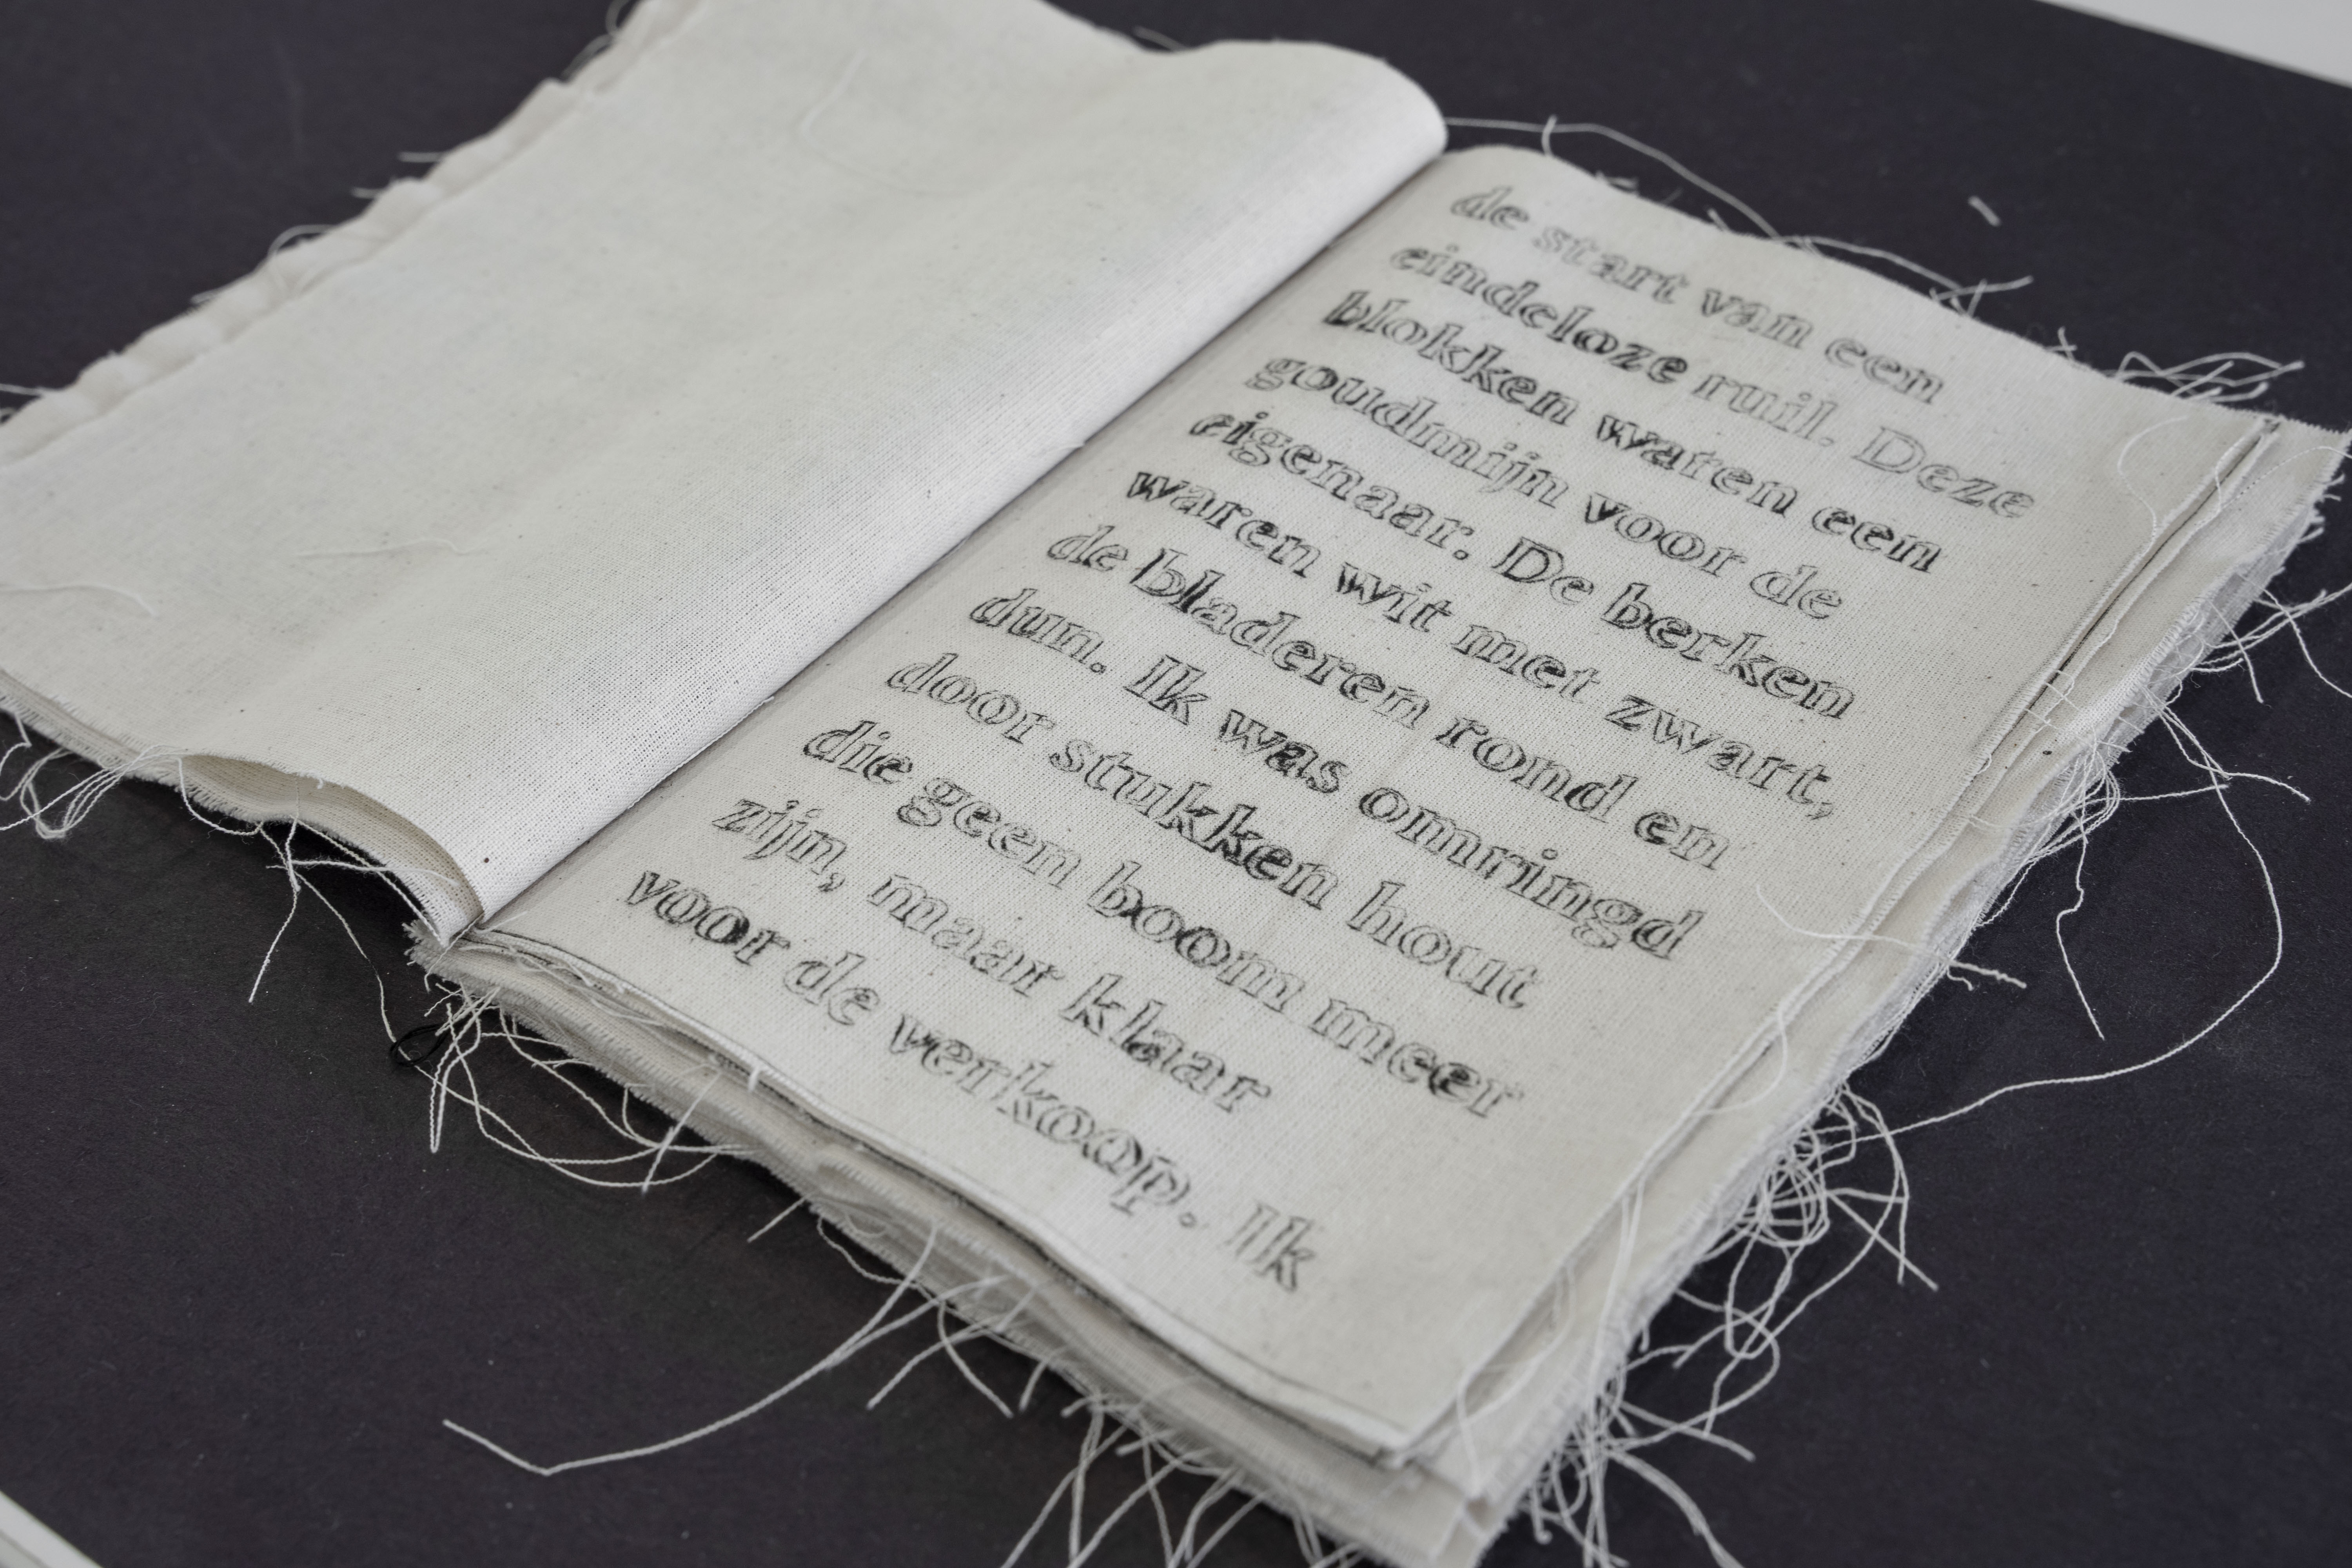 de start van een
eindeloze ruil. Deze
blokken waren een
goudmijn voor de
eigenaar. De berken
waren wit met zwart,
de bladeren rond en
dun. Ik was omringd
door stukken hout
die geen boom meer
zijn, maar klaar
voor de verkoop. Ik